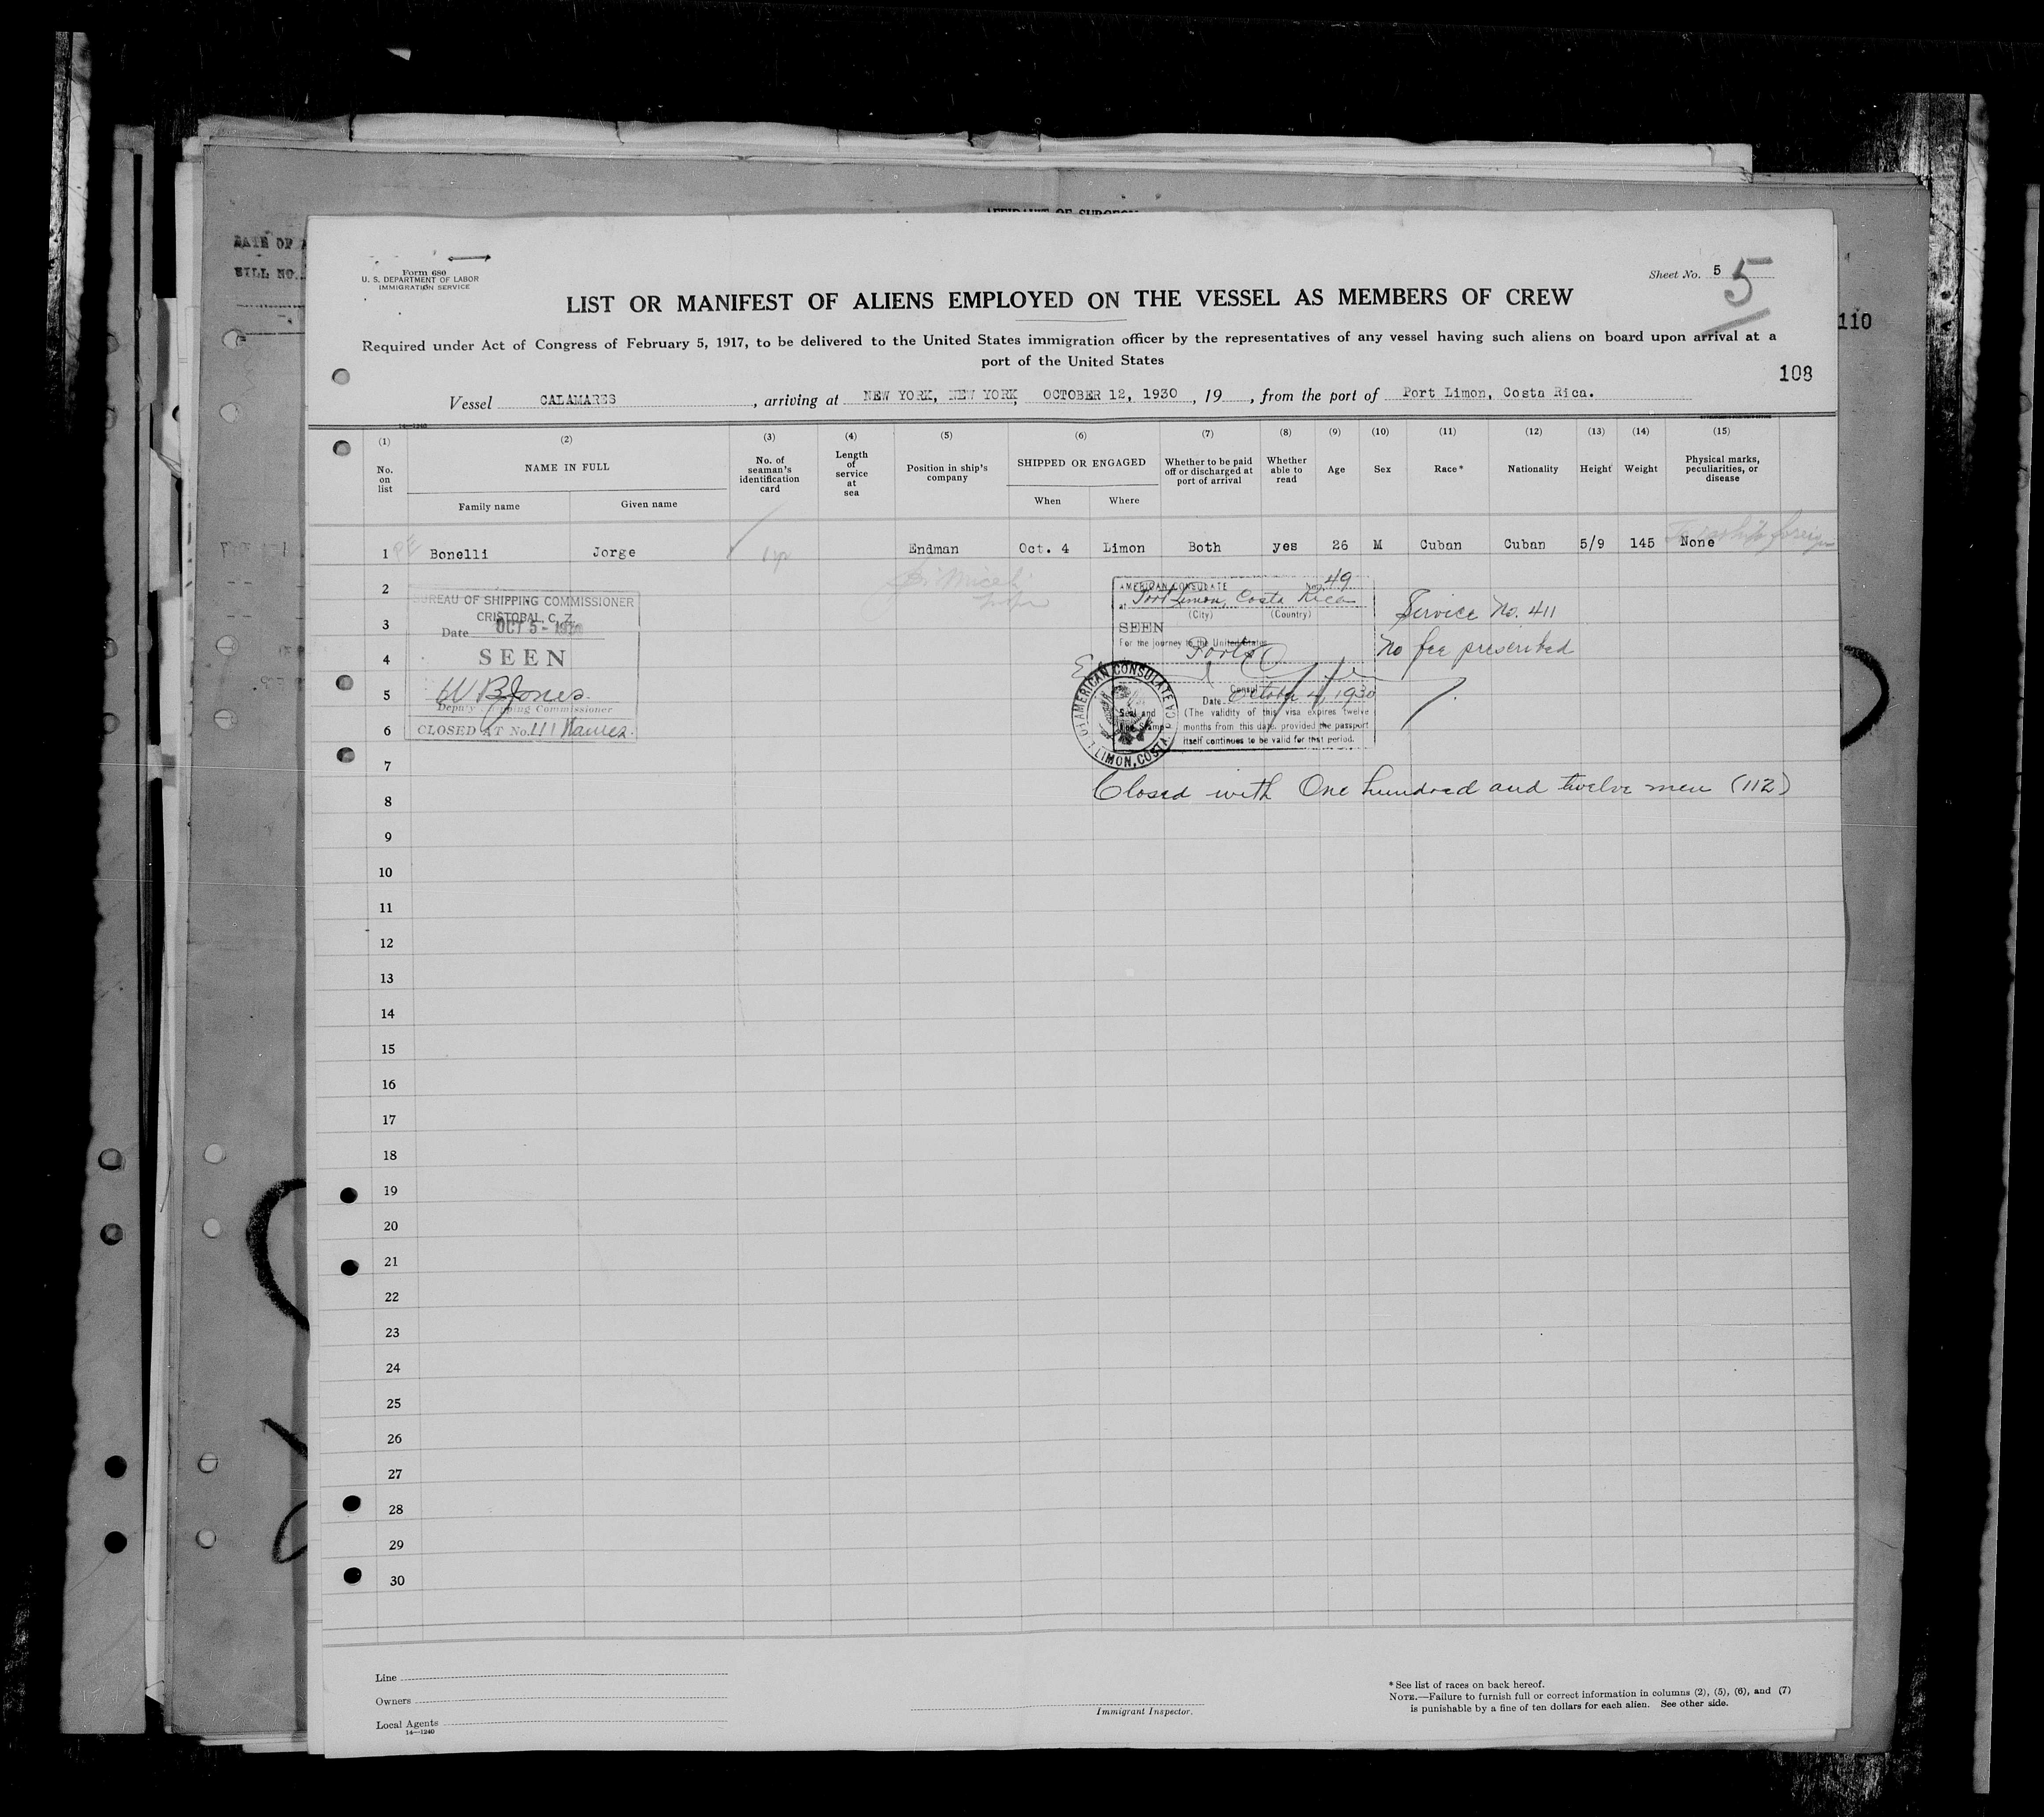 AFFIDAVIT OF SURGEON
DATE OF
BILL NO.
110
Form 680
U. S. DEPARTMENT OF LABOR
IMMIGRATION SERVICE
Sheet No. 5
5
LIST OR MANIFEST OF ALIENS EMPLOYED ON THE VESSEL AS MEMBERS OF CREW
Required under Act of Congress of February 5, 1917, to be delivered to the United States immigration officer by the representatives of any vessel having such aliens on board upon arrival at a
port of the United States
108
Vessel CALAMARES, arriving at NEW YORK, NEW YORK, OCTOBER 12, 1930, 19 , from the port of Port Limon, Costa Rica.
14—1240
(1) (2) (3) (4) (5) (6) (7) (8) (9) (10) (11) (12) (13) (14) (15)
No. on list
NAME IN FULL
Family name Given name
No. of seaman's identification card
Length of service at sea
Position in ship's company
SHIPPED OR ENGAGED
When Where
Whether to be paid off or discharged at port of arrival
Whether able to read
Age
Sex
Race*
Nationality
Height
Weight
Physical marks, peculiarities, or disease
1 Bonelli Jorge 1 yr Endman Oct. 4 Limon Both yes 26 M Cuban Cuban 5/9 145 None
2
3
4
5
6
7
8
9
10
11
12
13
14
15
16
17
18
19
20
21
22
23
24
25
26
27
28
29
30
BUREAU OF SHIPPING COMMISSIONER
CRISTOBAL, C. Z.
Date OCT 5 - 1930
SEEN
W B Jones
Deputy Shipping Commissioner
CLOSED AT No. 111 Names.
AMERICAN CONSULATE No. 49
at Port Limon, Costa Rica
(City) (Country)
SEEN
For the journey to the United States
Consul
Date October 4, 1930
Seal and
(The validity of this visa expires twelve
months from this date, provided the passport
itself continues to be valid for that period.
AMERICAN CONSULATE
LIMON, COSTA RICA
Service No. 411
No fee prescribed
Closed with One hundred and twelve men (112)
Line
Owners
Local Agents
14—1240
Immigrant Inspector.
* See list of races on back hereof.
NOTE.—Failure to furnish full or correct information in columns (2), (5), (6), and (7)
is punishable by a fine of ten dollars for each alien. See other side.